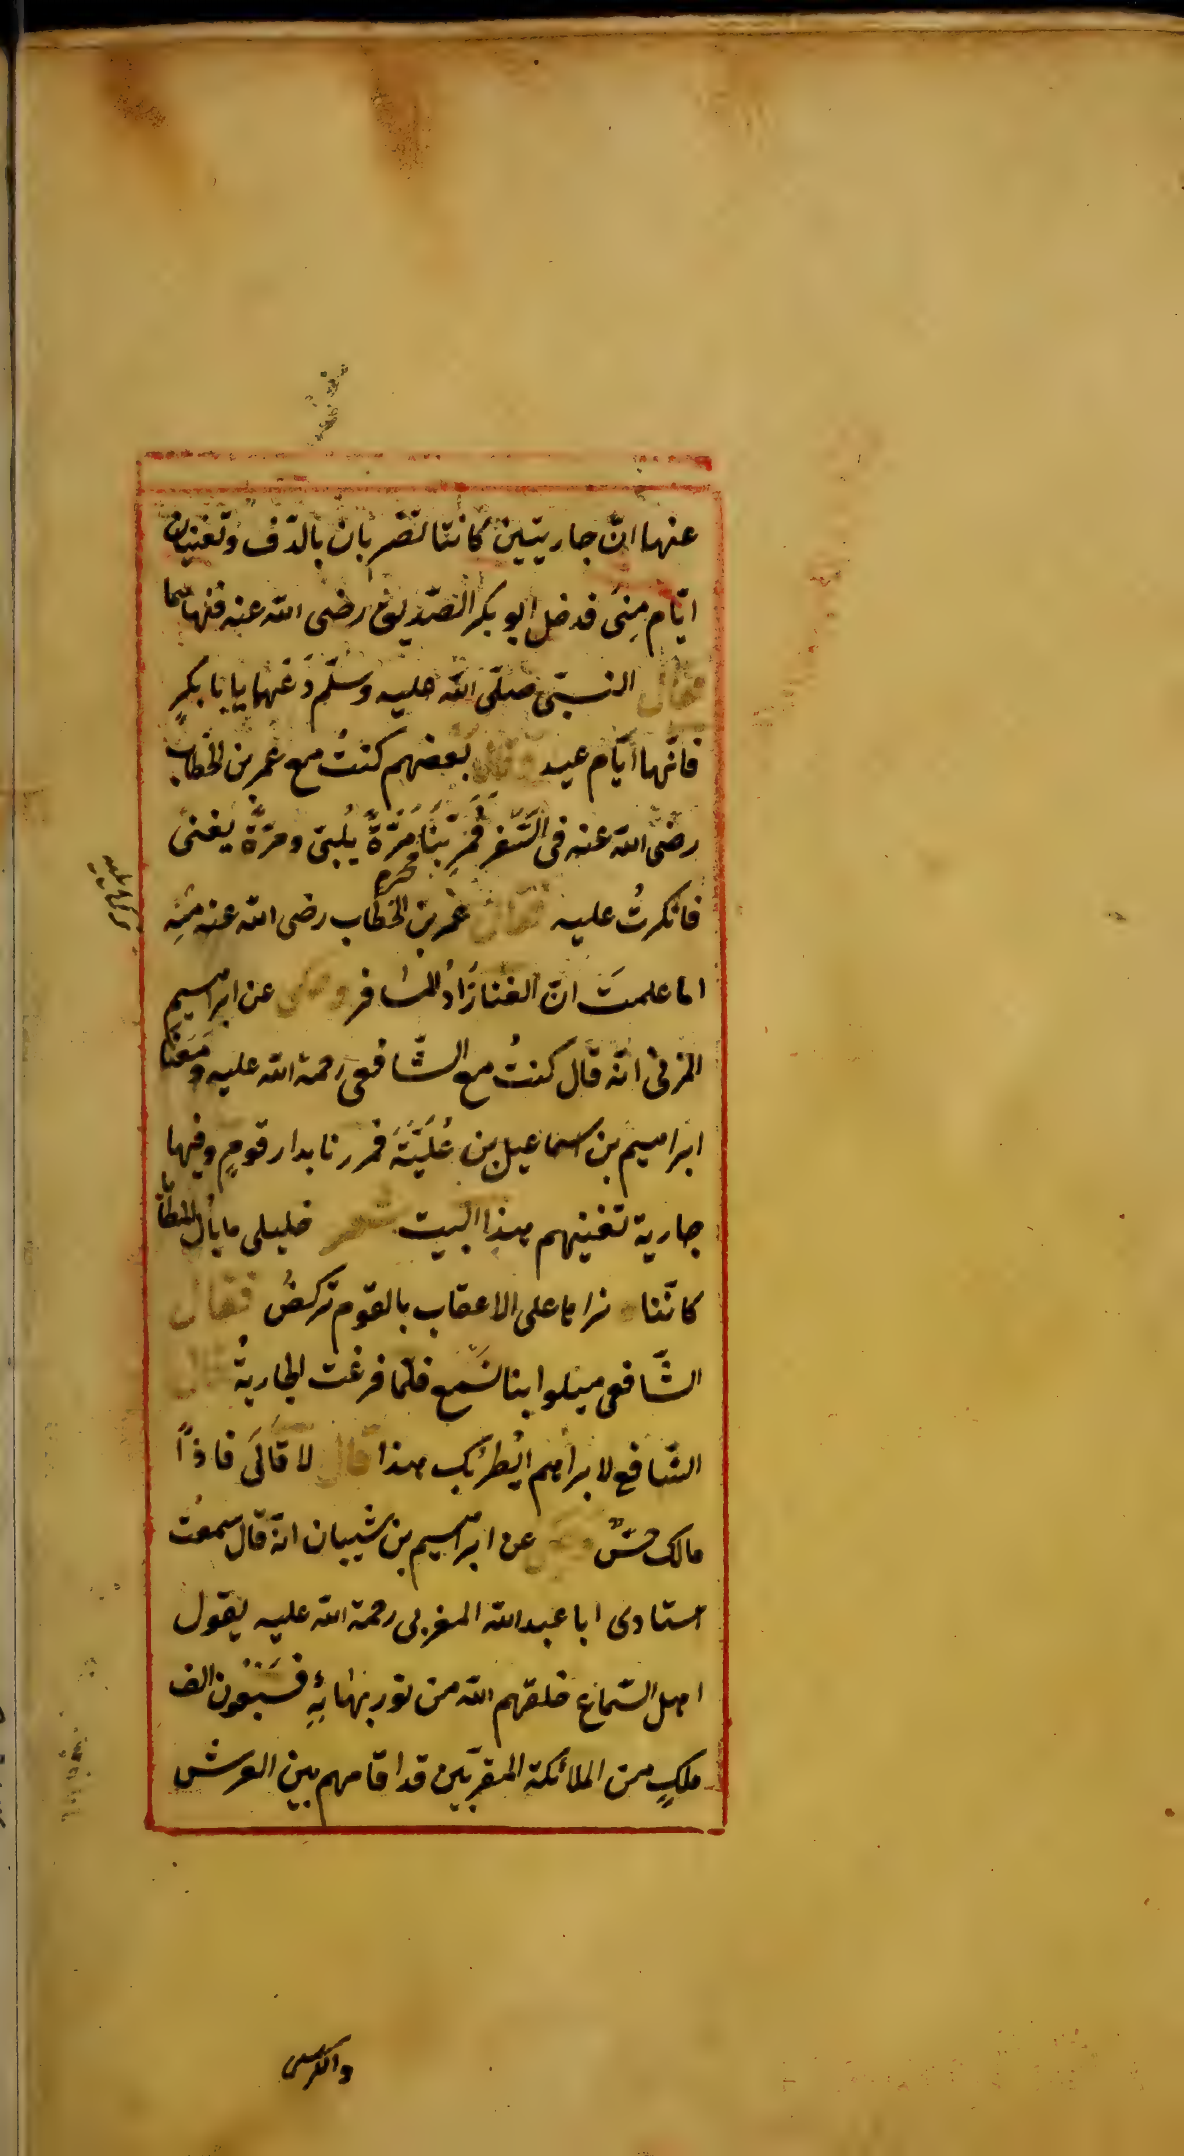 عنها انّ جاريتين كانتا تضربان بالدّف وتغنيان
ايّام مِنىً فدخل ابو بكر الصّديق رضى اللّه عنه فنهاهما
فقال النبىّ صلّى اللّه عليه وسلّم دَعهما يا با بكرٍ
فانّها ايّام عيد وقال بعضهم كنتُ مع عمر بن الخطاب
رضى اللّه عنه فى السَّفر فمَرّ بنا مَرّةً يُلبّى ومرّةً يغنى
محرم
فانكرتُ عليه فقال عمر بن الخطاب رضى اللّه عنه مَه
اما علمتَ انّ الغنا زَادُ المسافر عن ابراهيم
المزنى انّه قال كنتُ مع الشّافعى رحمة اللّه عليه ومَعَنا
ابراهيم بن اسماعيل بن عُليّة فمررنا بدار قومٍ وفيها
جارية تغنيهم بهذا البيت شعر خليلى ما بال المطايا
كانّنا نراها على الاعقاب بالقوم تركضُ فقال
الشّافعى ميلوا بنا نسمع فلمّا فرغت الجاريةُ قال
الشّافع لابراهيم ايُطربك هذا قال لا قالَ فاذاً
مالك حسّ عن ابراهيم بن شيبان انّه قال سمعت
استادى ابا عبد اللّه المغربى رحمة اللّه عليه يقول
اهل السّماع خلقهم اللّه من نور بهائِهِ فسبعُون الف
ملكٍ من الملائكة المقربّين قد اقامهم بين العرش
والكرسى